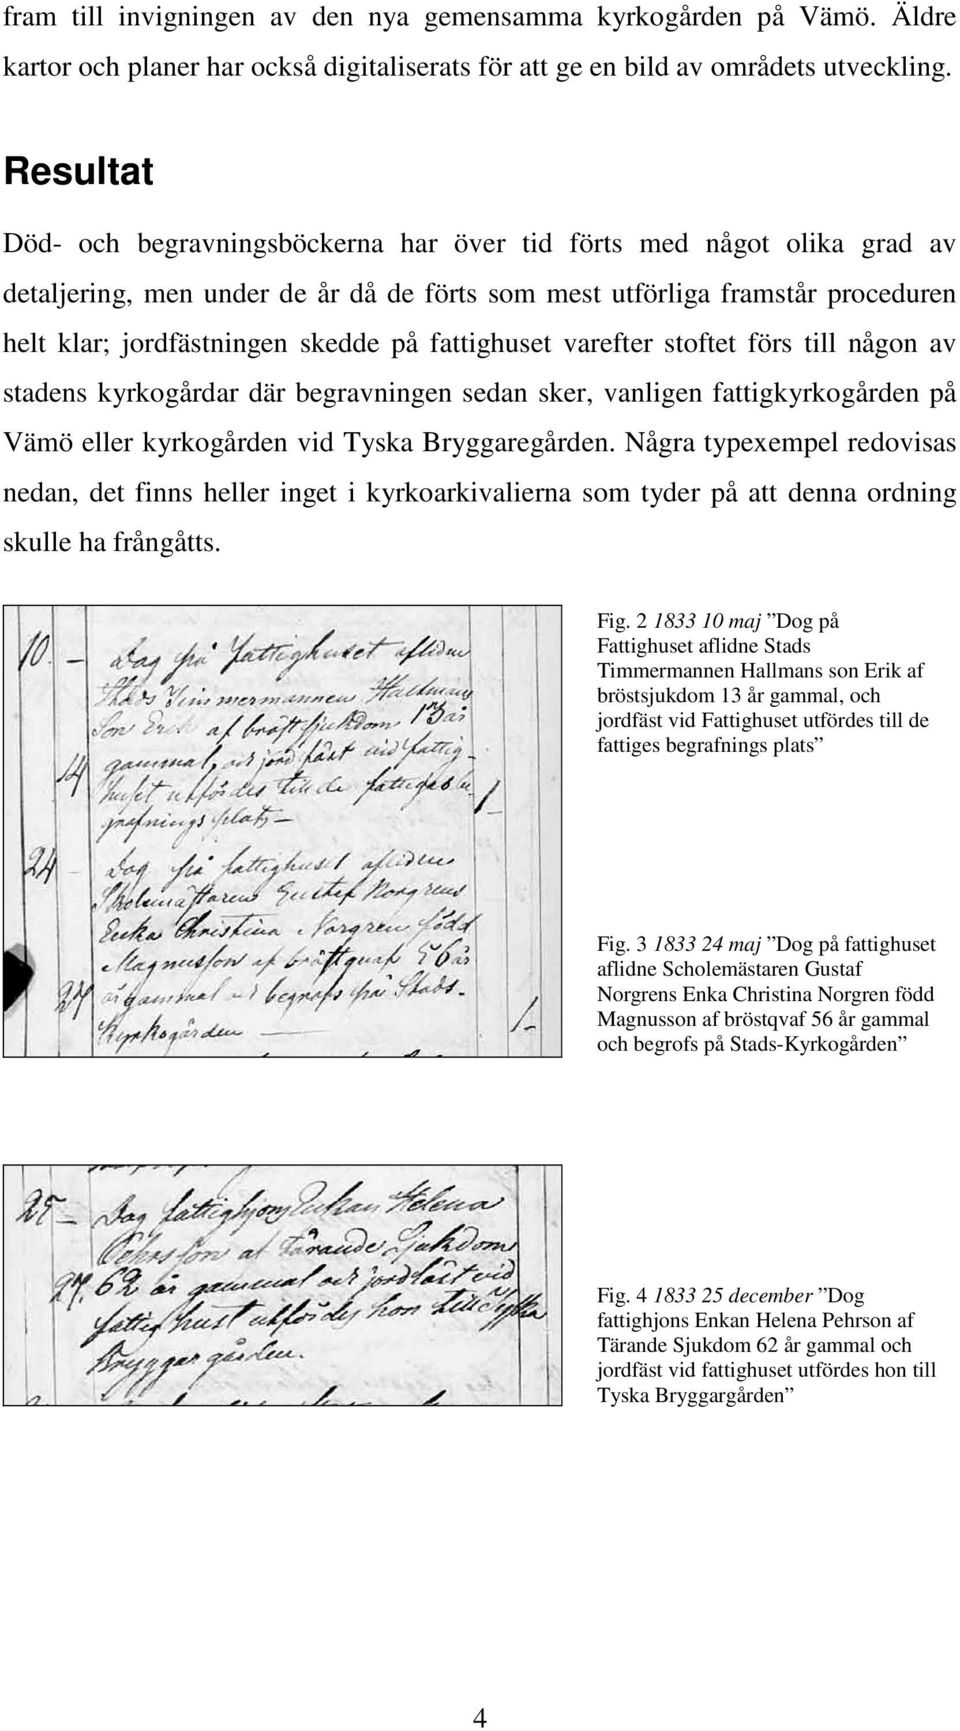 fram till invigningen av den nya gemensamma kyrkogården på Vämö. Äldre
kartor och planer har också digitaliserats för att ge en bild av områdets utveckling.
Resultat
Död- och begravningsböckerna har över tid förts med något olika grad av
detaljering, men under de år då de förts som mest utförliga framstår proceduren
helt klar; jordfästningen skedde på fattighuset varefter stoftet förs till någon av
stadens kyrkogårdar där begravningen sedan sker, vanligen fattigkyrkogården på
Vämö eller kyrkogården vid Tyska Bryggaregården. Några typexempel redovisas
nedan, det finns heller inget i kyrkoarkivalierna som tyder på att denna ordning
skulle ha frångåtts.
10. – Dog på Fattighuset aflidne
Stads Timmermannen Hallmans
Son Erik af bröstsjukdom 13 år
gammal, och jordfäst vid fattig-
14 huset utfördes till de fattiges be-
grafnings plats – 1–
24 – Dog på fattighuset aflidne
Scholemästaren Gustaf Norgrens
Enka Christina Norgren född
Magnusson af bröstqvaf 56 år
27 gammal och begrofs på Stads-
Kyrkogården 1–
Fig. 2 1833 10 maj ”Dog på
Fattighuset aflidne Stads
Timmermannen Hallmans son Erik af
bröstsjukdom 13 år gammal, och
jordfäst vid Fattighuset utfördes till de
fattiges begrafnings plats”
Fig. 3 1833 24 maj ”Dog på fattighuset
aflidne Scholemästaren Gustaf
Norgrens Enka Christina Norgren född
Magnusson af bröstqvaf 56 år gammal
och begrofs på Stads-Kyrkogården”
25 – Dog fattighjons Enkan Helena
Pehrsson af Tärande Sjukdom
27. 62 år gammal och jordfäst vid
fattighuset utfördes hon till Tyska
Bryggargården.
Fig. 4 1833 25 december ”Dog
fattighjons Enkan Helena Pehrson af
Tärande Sjukdom 62 år gammal och
jordfäst vid fattighuset utfördes hon till
Tyska Bryggargården”
4